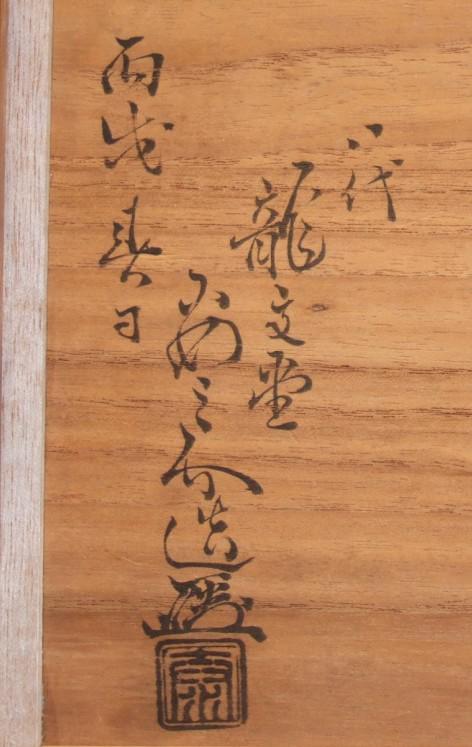 八代
龍文堂
安之介造
丙戌春日